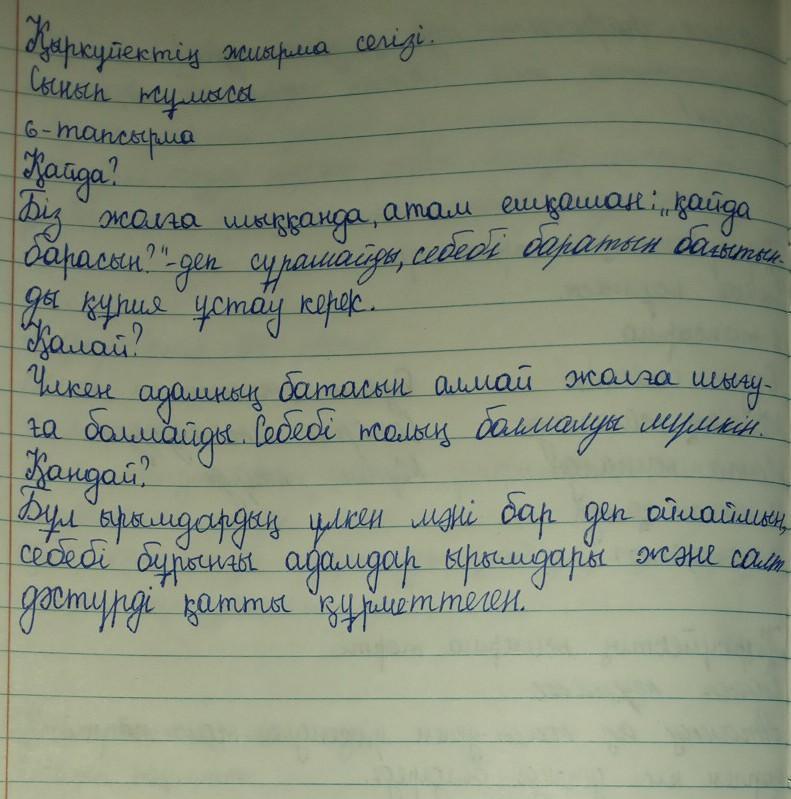 Қыркүйектің жиырма сегізі.
Сынып жұмысы
6-тапсырма
Қайда?
Біз жолға шыққанда, атам ешқашан: „қайда
барасын?"-деп сұрамайды, себебі баратын бағытын-
ды құпия ұстау керек.
Қалай?
Үлкен адамның батасын алмай жолға шығу-
ға болмайды. Себебі жолың болмалуы мүмкін.
Қандай?
Бұл ырымдардың үлкен мәні бар деп ойлаймын,
себебі бұрынғы адамдар ырымдары және салт
дәстүрді қатты құрметтеген.